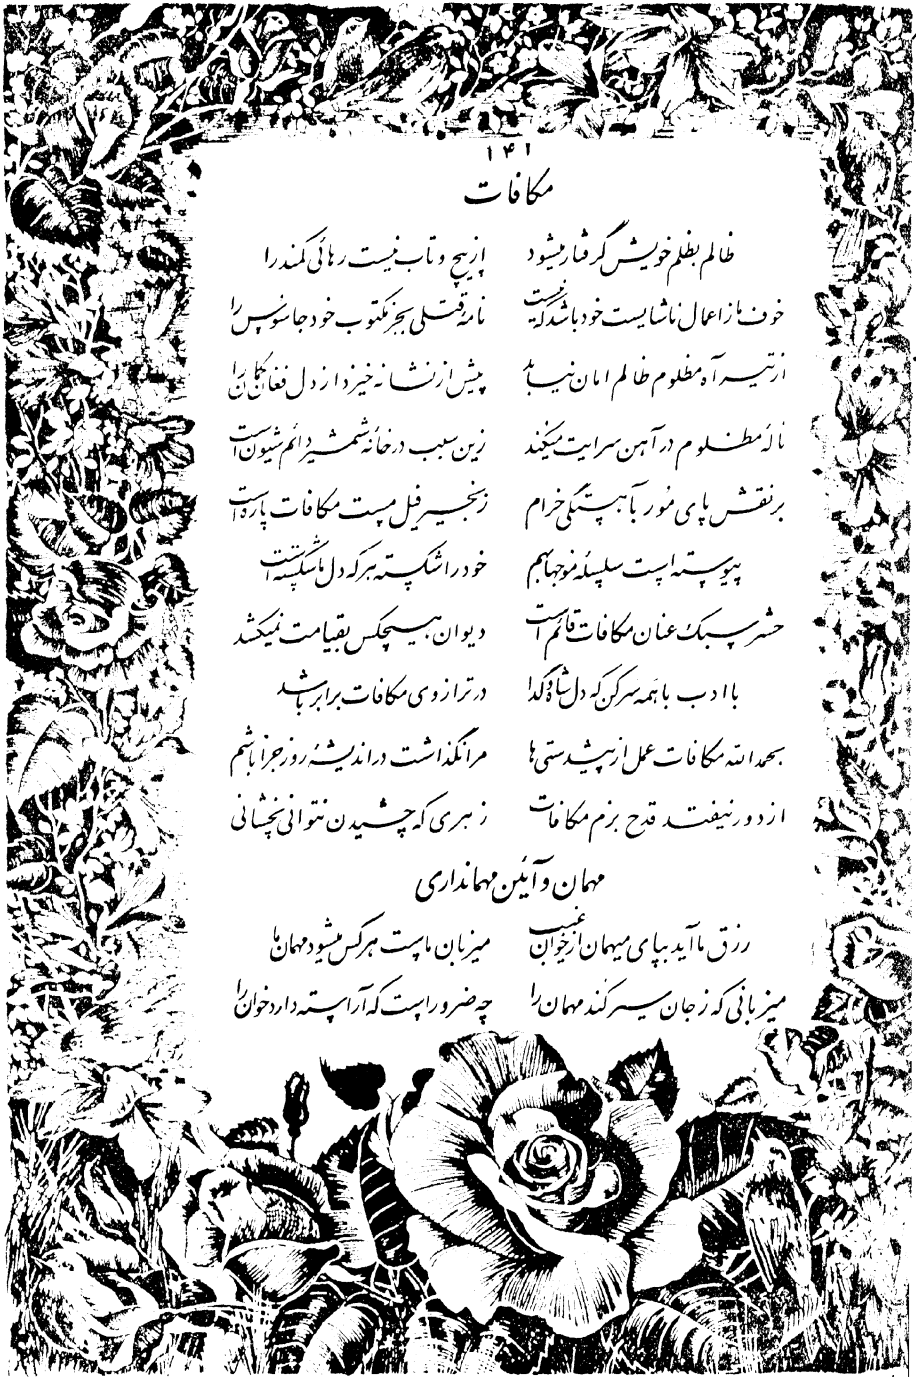 ۱۴۱
مکافات
ظالم بظلم خویش گرفتار میشود از پیچ و تاب نیست رهائی کمند را
خوف ما از اعمال ناشایست خود باشد که نیست نامهٔ قتلی بجز مکتوب خود جاسوس را
از تیر آه مظلوم ظالم امان نیابد پیش از نشانه خیزد از دل فغان کمان را
نالهٔ مظلوم در آهن سرایت میکند زین سبب در خانهٔ شمشیر دائم شیون است
بر نقش پای مور بآهستگی خرام زنجیر فیل مست مکافات پاره است
پیوسته است سلسلهٔ موجها بهم خود را شکسته هر که دل ما شکسته است
حشر سبک عنان مکافات قائم است دیوان هیچکس بقیامت نمیکشد
با ادب با همه سر کن که دل شاه و گدا در ترازوی مکافات برابر باشد
بحمدالله مکافات عمل از پیشدستی‌ها مرا نگذاشت در اندیشهٔ روز جزا باشم
از دور نیفتد قدح بزم مکافات زهری که چشیدن نتوانی نچشانی
مهمان و آئین مهمانداری
رزق ما آید بپای میهمان از خوان غیب میزبان ماست هر کس میشود مهمان ما
میزبانی که ز جان سیر کند مهمان را چه ضرور است که آراسته دارد خوان را